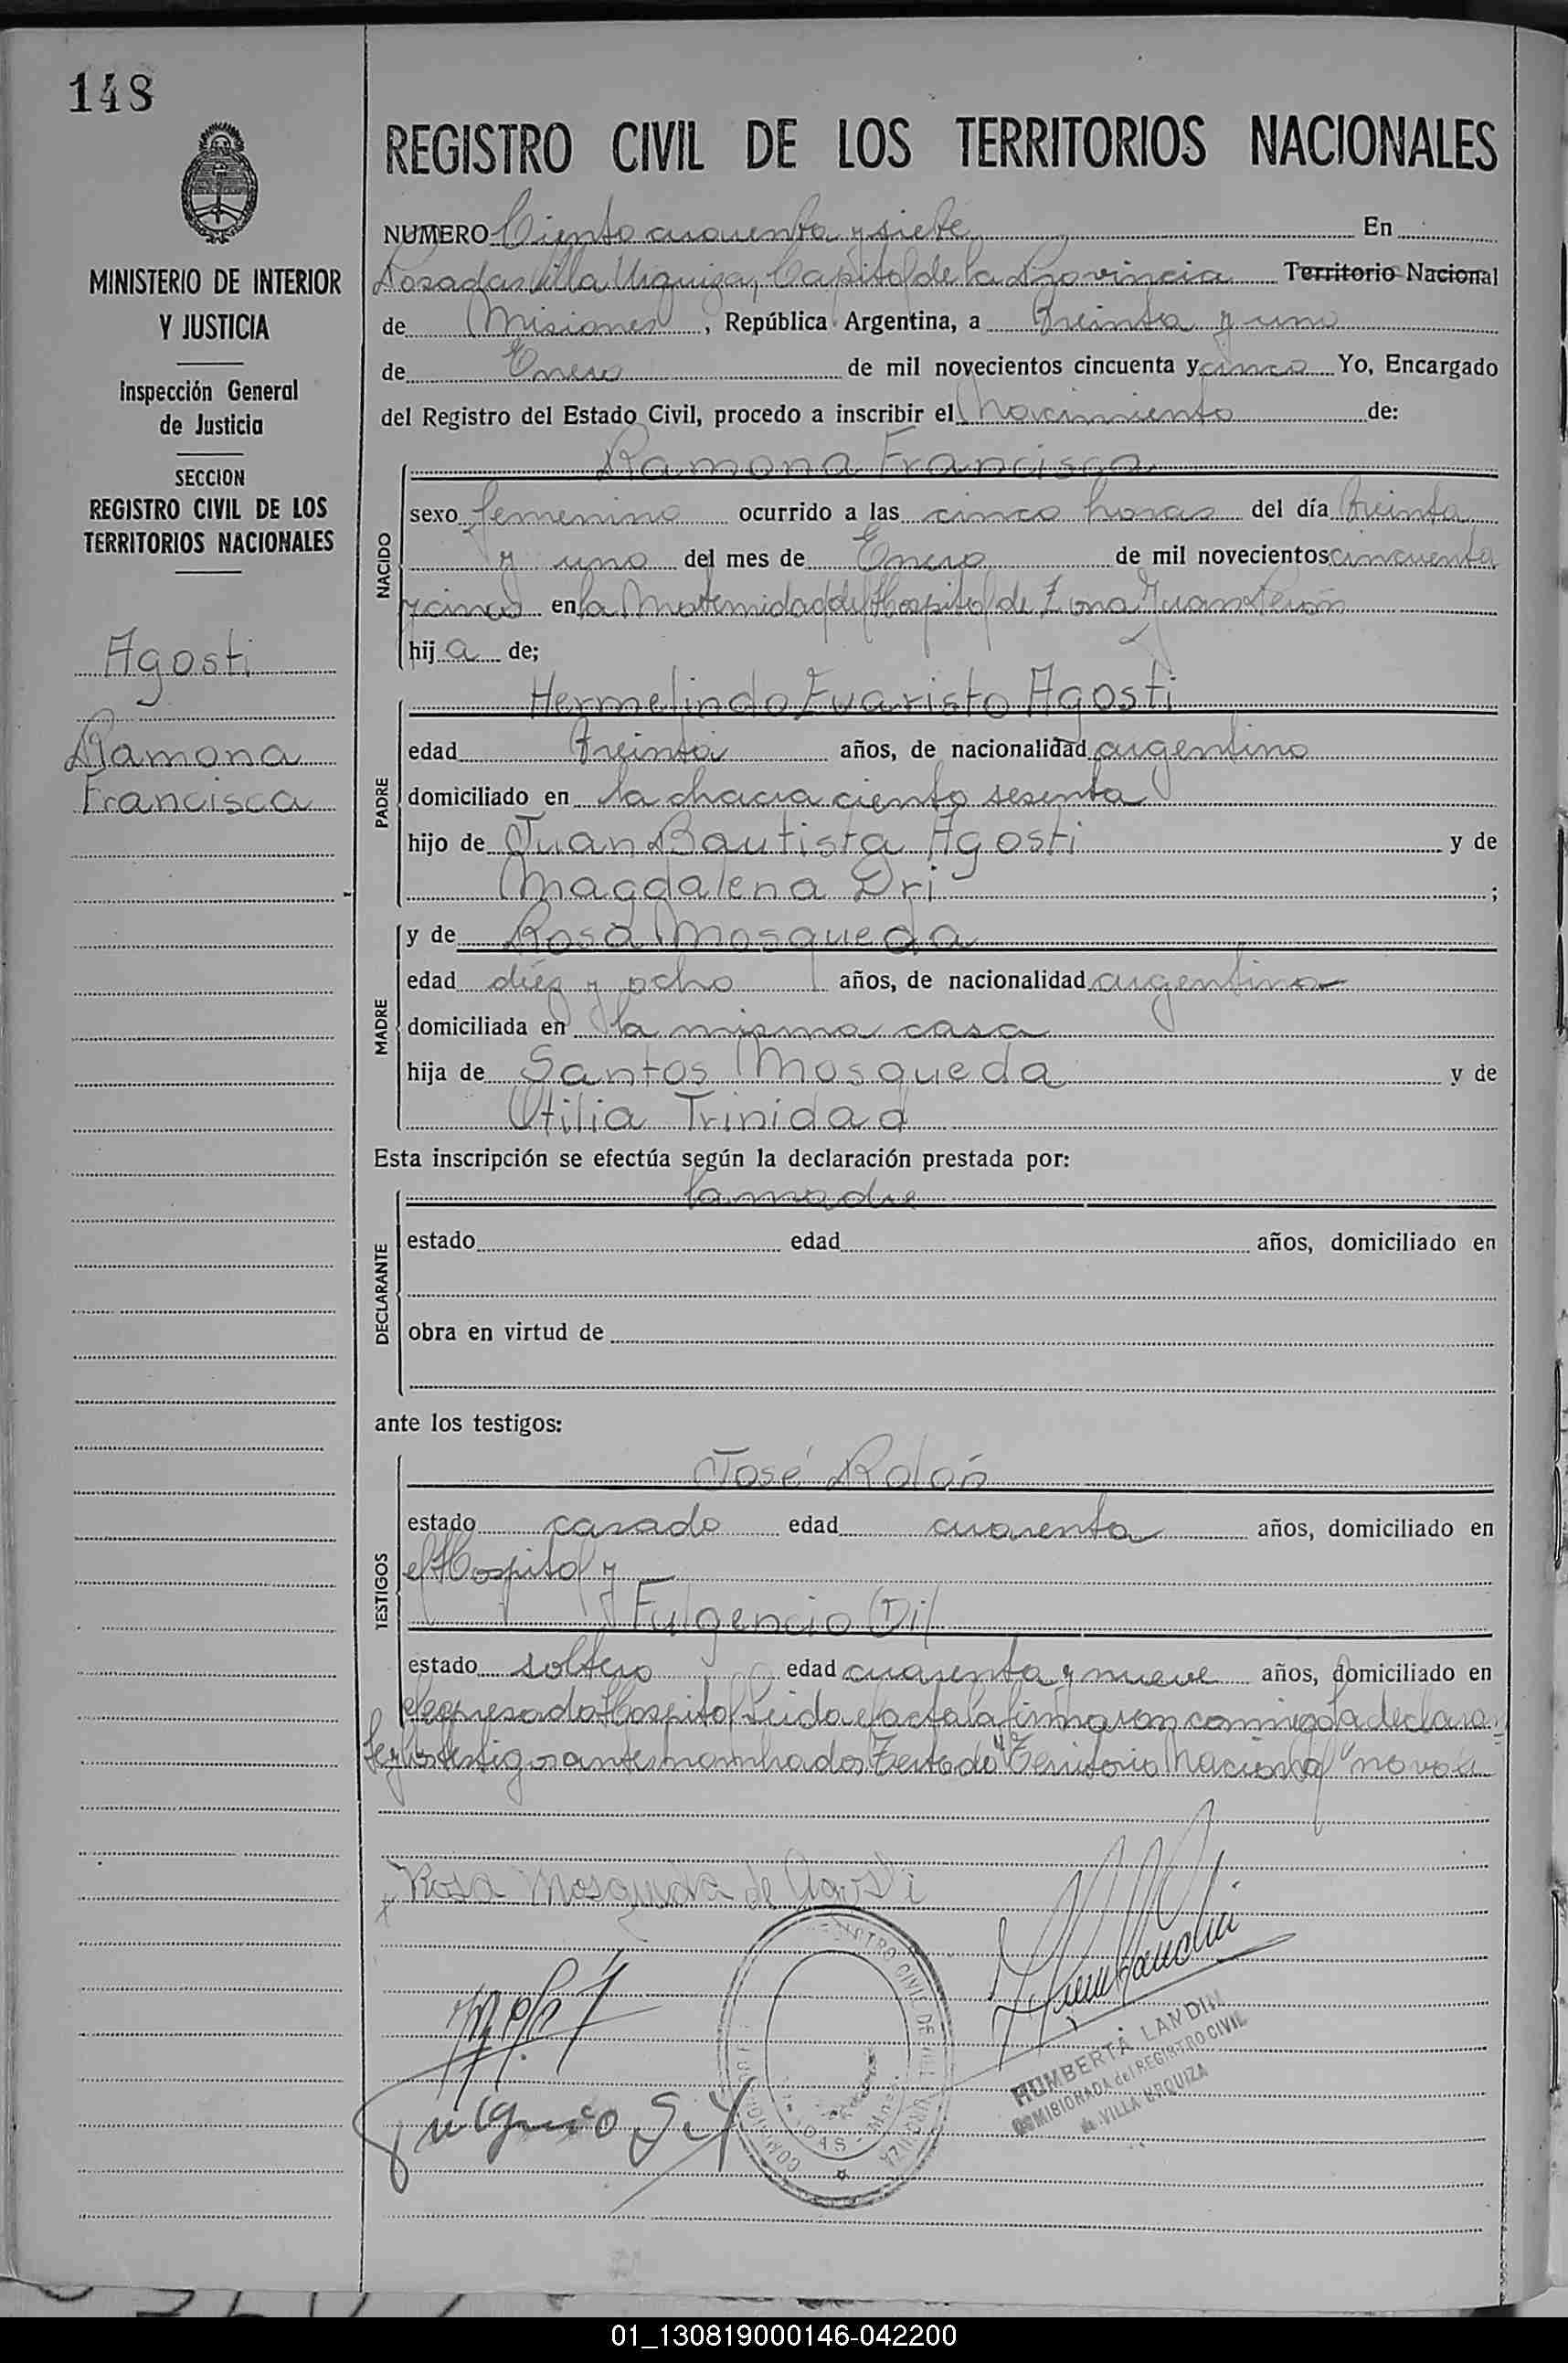 148
MINISTERIO DE INTERIOR
Y JUSTICIA
Inspección General
de Justicia
SECCION
REGISTRO CIVIL DE LOS
TERRITORIOS NACIONALES
Agosti
Ramona
Francisca
REGISTRO CIVIL DE LOS TERRITORIOS NACIONALES
NUMERO Ciento cuarenta y siete En
Posadas Villa Urquiza, Capital de la Provincia Territorio Nacional
de Misiones, República Argentina, a treinta y uno
de Enero de mil novecientos cincuenta y cinco Yo, Encargado
del Registro del Estado Civil, procedo a inscribir el Nacimiento de:
NACIDO
Ramona Francisca
sexo femenino ocurrido a las cinco horas del día treinta
y uno del mes de Enero de mil novecientos cincuenta
y cinco en la Maternidad del Hospital de Zona Juan Perón
hija de;
PADRE
Hermelindo Evaristo Agosti
edad treinta años, de nacionalidad argentino
domiciliado en la chacra ciento sesenta
hijo de Juan Bautista Agosti y de
Magdalena Dri;
MADRE
y de Rosa Mosqueda
edad diez y ocho años, de nacionalidad argentina
domiciliada en la misma casa
hija de Santos Mosqueda y de
Otilia Trinidad
Esta inscripción se efectúa según la declaración prestada por:
DECLARANTE
la madre
estado edad años, domiciliado en
obra en virtud de
ante los testigos:
TESTIGOS
José Rolón
estado casado edad cuarenta años, domiciliado en
el Hospital y
Fulgencio Gil
estado soltero edad cuarenta y nueve años, domiciliado en
el expresado Hospital Leida el acta la firmaron conmigo la declaran=
te y los testigos antes nombrados Testado "Territorio Nacional" no vale
Rosa Mosqueda de Agosti
Fulgencio Gil
REGISTRO CIVIL DE VILLA URQUIZA
HUMBERTA LANDIN
COMISIONADA del REGISTRO CIVIL
de VILLA URQUIZA
01_130819000146-042200